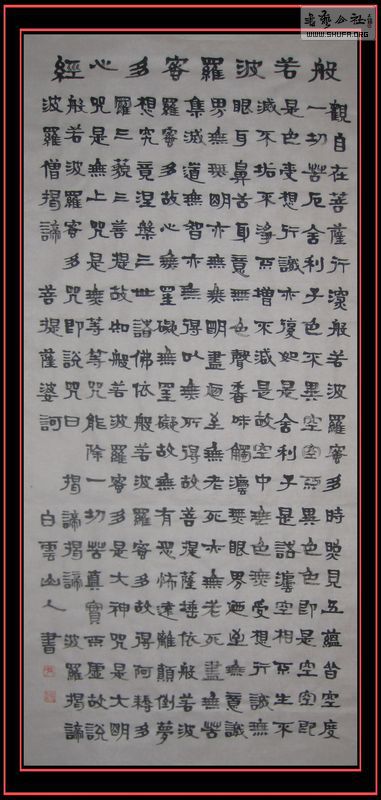 般若波羅蜜多心經
觀自在菩薩行深般若波羅蜜多時照見五蘊皆空度
一切苦厄舍利子色不異空空不異色色即是空空即
是色受想行識亦復如是舍利子是諸灋空相不生不
滅不垢不淨不增不減是故空中無色無受想行識無
眼耳鼻舌身意無色聲香味觸灋無眼界迺至無意識
界無無明亦無無明盡迺至無老死亦無老死盡無苦
集滅道無智亦無得以無所得故菩提薩埵依般若波
羅蜜多故心無罣礙無罣礙故無有恐怖遠離顛倒夢
想究竟涅槃三世諸佛依般若波羅蜜多故得阿耨多
羅三藐三菩提故知般若波羅蜜多是大神咒是大明
咒是無上咒是無等等咒能除一切苦真實不虛故說
般若波羅蜜多咒即說咒曰 揭諦揭諦 波羅揭諦
波羅僧揭諦 菩提薩婆訶 白雲山人書
WWW.SHUFA.ORG